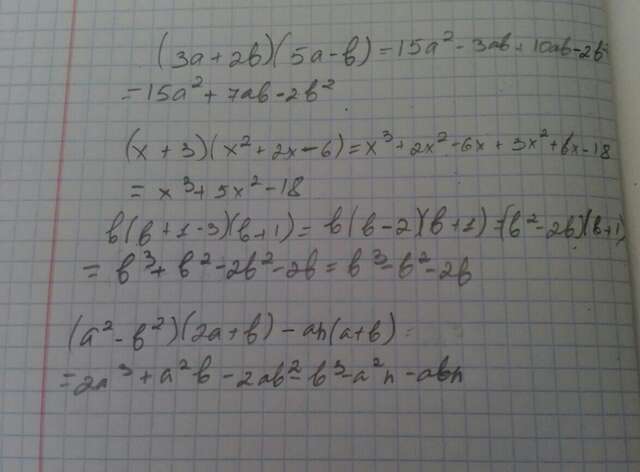 (3a+2b)(5a-b)=15a²-3ab+10ab-2b²
=15a²+7ab-2b²
(x+3)(x²+2x-6)=x³+2x²-6x+3x²+6x-18
=x³+5x²-18
b(b+1-3)(b+1)=b(b-2)(b+1)=(b²-2b)(b+1)
=b³+b²-2b²-2b=b³-b²-2b
(a²-b²)(2a+b)-an(a+b)=
=2a³+a²b-2ab²-b³-a²n-abn